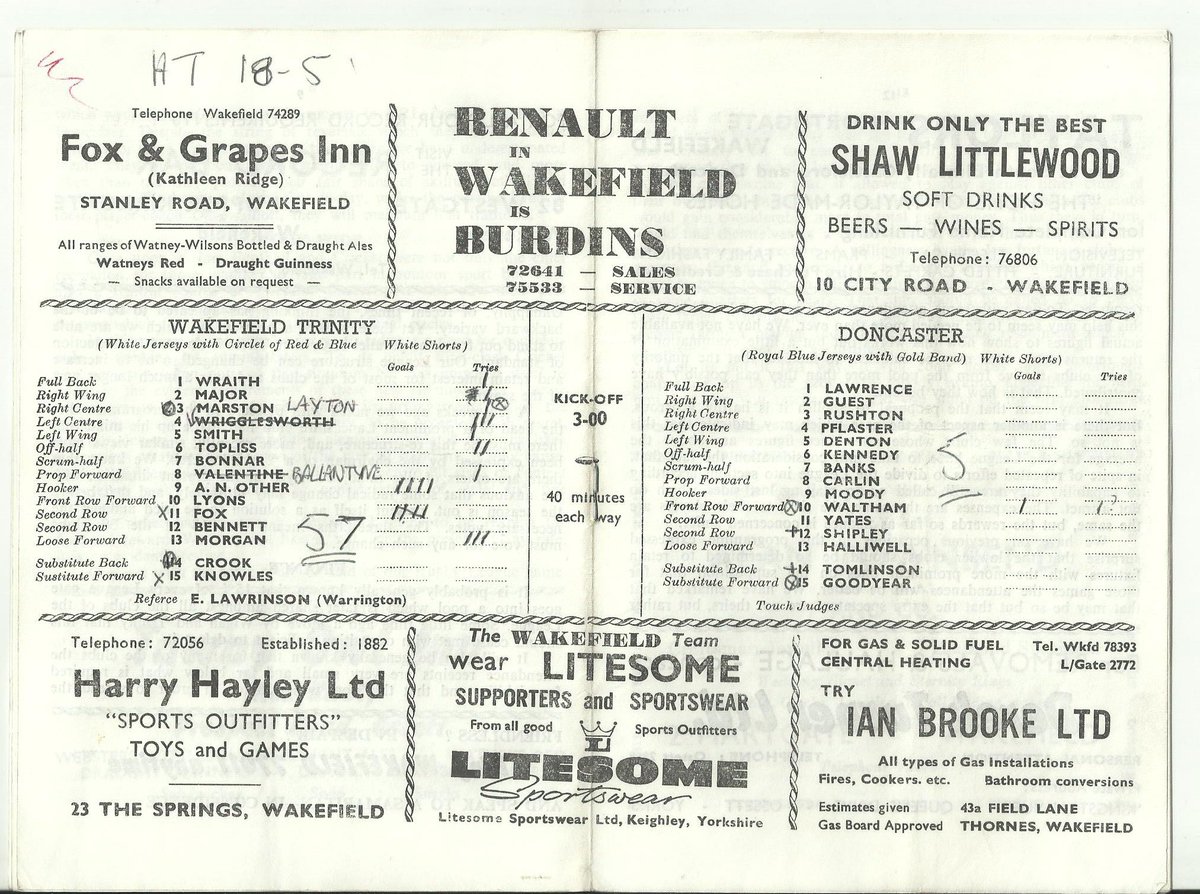 HT 18-5
Telephone Wakefield 74289
Fox & Grapes Inn
(Kathleen Ridge)
STANLEY ROAD, WAKEFIELD
All ranges of Watney-Wilsons Bottled & Draught Ales
Watneys Red - Draught Guinness
— Snacks available on request —
RENAULT
IN
WAKEFIELD
IS
BURDINS
72641 — SALES
75533 — SERVICE
DRINK ONLY THE BEST
SHAW LITTLEWOOD
SOFT DRINKS
BEERS - WINES - SPIRITS
Telephone: 76806
10 CITY ROAD - WAKEFIELD
WAKEFIELD TRINITY
(White Jerseys with Circlet of Red & Blue White Shorts)
Goals Tries
Full Back 1 WRAITH
Right Wing 2 MAJOR
Right Centre 3 MARSTON LAYTON
Left Centre 4 WRIGGLESWORTH
Left Wing 5 SMITH
Off-half 6 TOPLISS
Scrum-half 7 BONNAR
Prop Forward 8 VALENTINE BALLANTYNE
Hooker 9 A. N. OTHER
Front Row Forward 10 LYONS
Second Row 11 FOX
Second Row 12 BENNETT
Loose Forward 13 MORGAN
57
Substitute Back 14 CROOK
Sustitute Forward 15 KNOWLES
Referee E. LAWRINSON (Warrington)
KICK-OFF
3-00
40 minutes
each way
DONCASTER
(Royal Blue Jerseys with Gold Band) White Shorts)
Goals Tries
Full Back 1 LAWRENCE
Right Wing 2 GUEST
Right Centre 3 RUSHTON
Left Centre 4 PFLASTER
Left Wing 5 DENTON
Off-half 6 KENNEDY
Scrum-half 7 BANKS
Prop Forward 8 CARLIN
Hooker 9 MOODY
Front Row Forward 10 WALTHAM
Second Row 11 YATES
Second Row 12 SHIPLEY
Loose Forward 13 HALLIWELL
5
Substitute Back 14 TOMLINSON
Substitute Forward 15 GOODYEAR
Touch Judges
Telephone: 72056 Established: 1882
Harry Hayley Ltd
"SPORTS OUTFITTERS"
TOYS and GAMES
23 THE SPRINGS, WAKEFIELD
The WAKEFIELD Team
wear LITESOME
SUPPORTERS and SPORTSWEAR
From all good Sports Outfitters
L
LITESOME
Sportswear
Litesome Sportswear Ltd, Keighley, Yorkshire
FOR GAS & SOLID FUEL Tel. Wkfd 78393
CENTRAL HEATING L/Gate 2772
TRY
IAN BROOKE LTD
All types of Gas Installations
Fires, Cookers. etc. Bathroom conversions
Estimates given 43a FIELD LANE
Gas Board Approved THORNES, WAKEFIELD